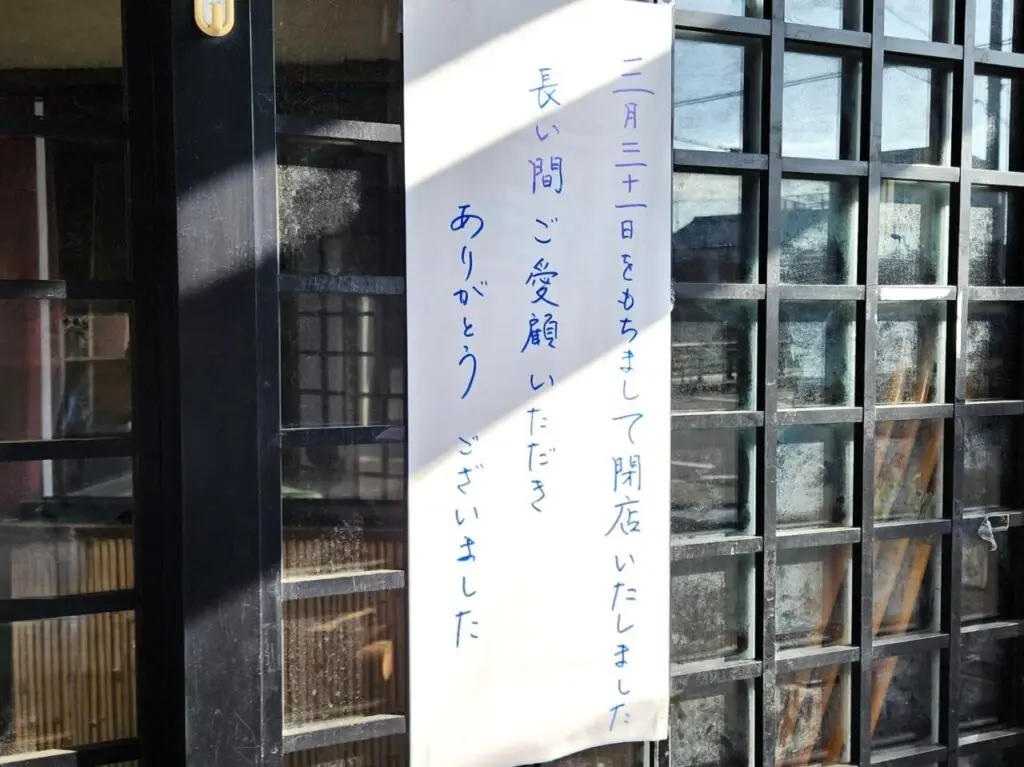 三月三十一日をもちまして閉店いたしました
長い間ご愛顧いただき
ありがとうございました